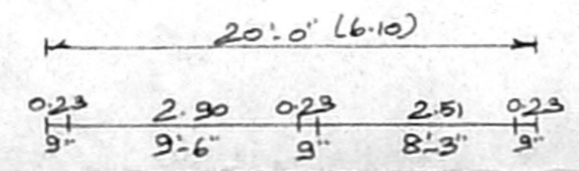 20'-0" (6.10)
0.23 2.90 0.23 2.51 0.23
9" 9'-6" 9" 8'-3" 9"